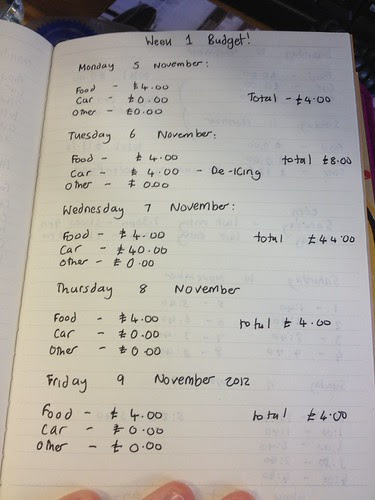 Week 1 Budget!
Monday 5 November:
Food - £4.00
Car - £0.00 Total - £4.00
Other - £0.00
Tuesday 6 November:
Food - £4.00 total £8.00
Car - £4.00 - De-Icing
Other - £0.00
Wednesday 7 November:
Food - £4.00 total £44.00
Car - £40.00
Other - £0.00
Thursday 8 November
Food - £4.00 total £4.00
Car - £0.00
Other - £0.00
Friday 9 November 2012
Food - £4.00 total £4.00
Car - £0.00
Other - £0.00